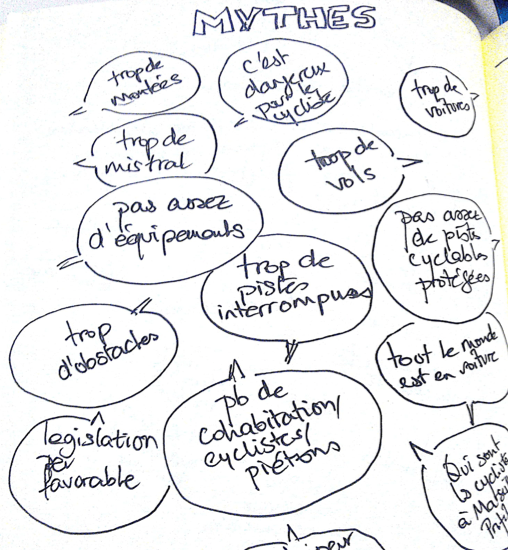 MYTHES
trop de
montées
c'est
dangereux
pour le
cycliste
trop de
voitures
trop de
mistral
troop de
vols
pas assez
d'équipements
pas assez
de pistes
cyclables
protégées
trop de
pistes
interrompues
trop
d'obstacles
tout le monde
est en voiture
legislation
peu
favorable
pb de
cohabitation/
cyclistes/
piétons
Qui sont
les cyclist
à Marse